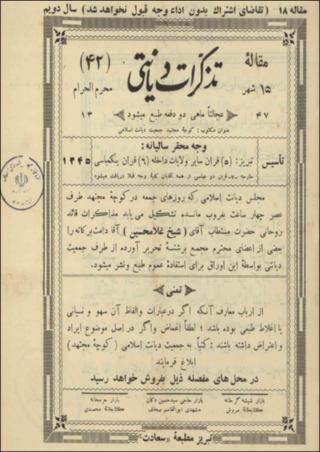 مقاله ۱۸ (تقاضای اشتراک بدون اداء وجه قبول نخواهد شد) سال دویم
مقالهٔ
(۴۲)
تذکرات دیانتی
۱۵ شهر
محرم الحرام
۴۷
عجالتاً ماهی دو دفعه طبع میشود
۱۳
عنوان مکتوب: کوچهٔ مجتهد جمعیت دیانت اسلامی
وجه محقر سالیانه:
تأسیس
تبریز: (۵) قران سایر ولایات داخله (۶) قران یکعباسی
۱۳۴۵
مجلس دیانت اسلامی که روزهای جمعه در کوچهٔ مجتهد طرف
عصر چهار ساعت بغروب مانده تشکیل می یابد مذاکرات قائد
روحانی حضرت مستطاب آقای (شیخ غلامحسین) آقا دامت برکاته را
بعضی از اعضای محترم مجمع برشتهٔ تحریر آورده از طرف جمعیت
دیانتی بواسطهٔ این اوراق برای استفادهٔ عموم طبع ونشر میشود.
تمنی
از ارباب معارف آنکه اگر درعبارات والفاظ آن سهو و نسیانی
یا اغلاط طبعی بوده باشد؛ لطفاً اغماض واگر در اصل موضوع ایراد
و اعتراض داشته باشند: کتباً به جمعیت دیانت اسلامی (کوچهٔ مجتهد)
ابلاغ فرمایند
در محل های مفصله ذیل بفروش خواهد رسید
بازار شیشه گرخانه
کتابخانهٔ سروش
بازار حاجی سیدحسین دکان
مشهدی ابوالقاسم صحاف
بازار حرمخانه
کتابخانهٔ محمدی
تبریز مطبعهٔ «سعادت»